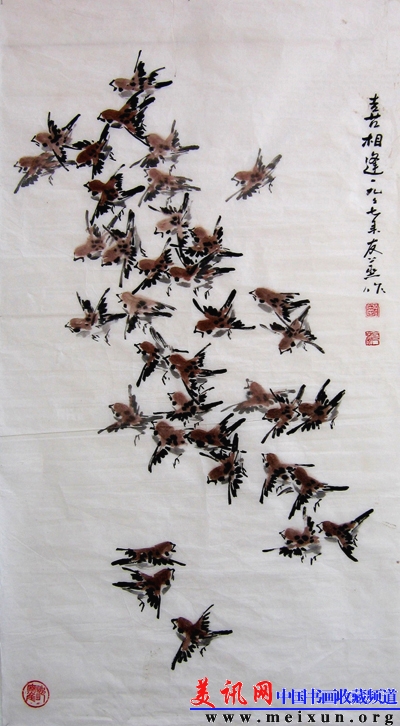 喜相逢一九九七年友益作
美讯网 中国书画收藏频道
www.meixun.org